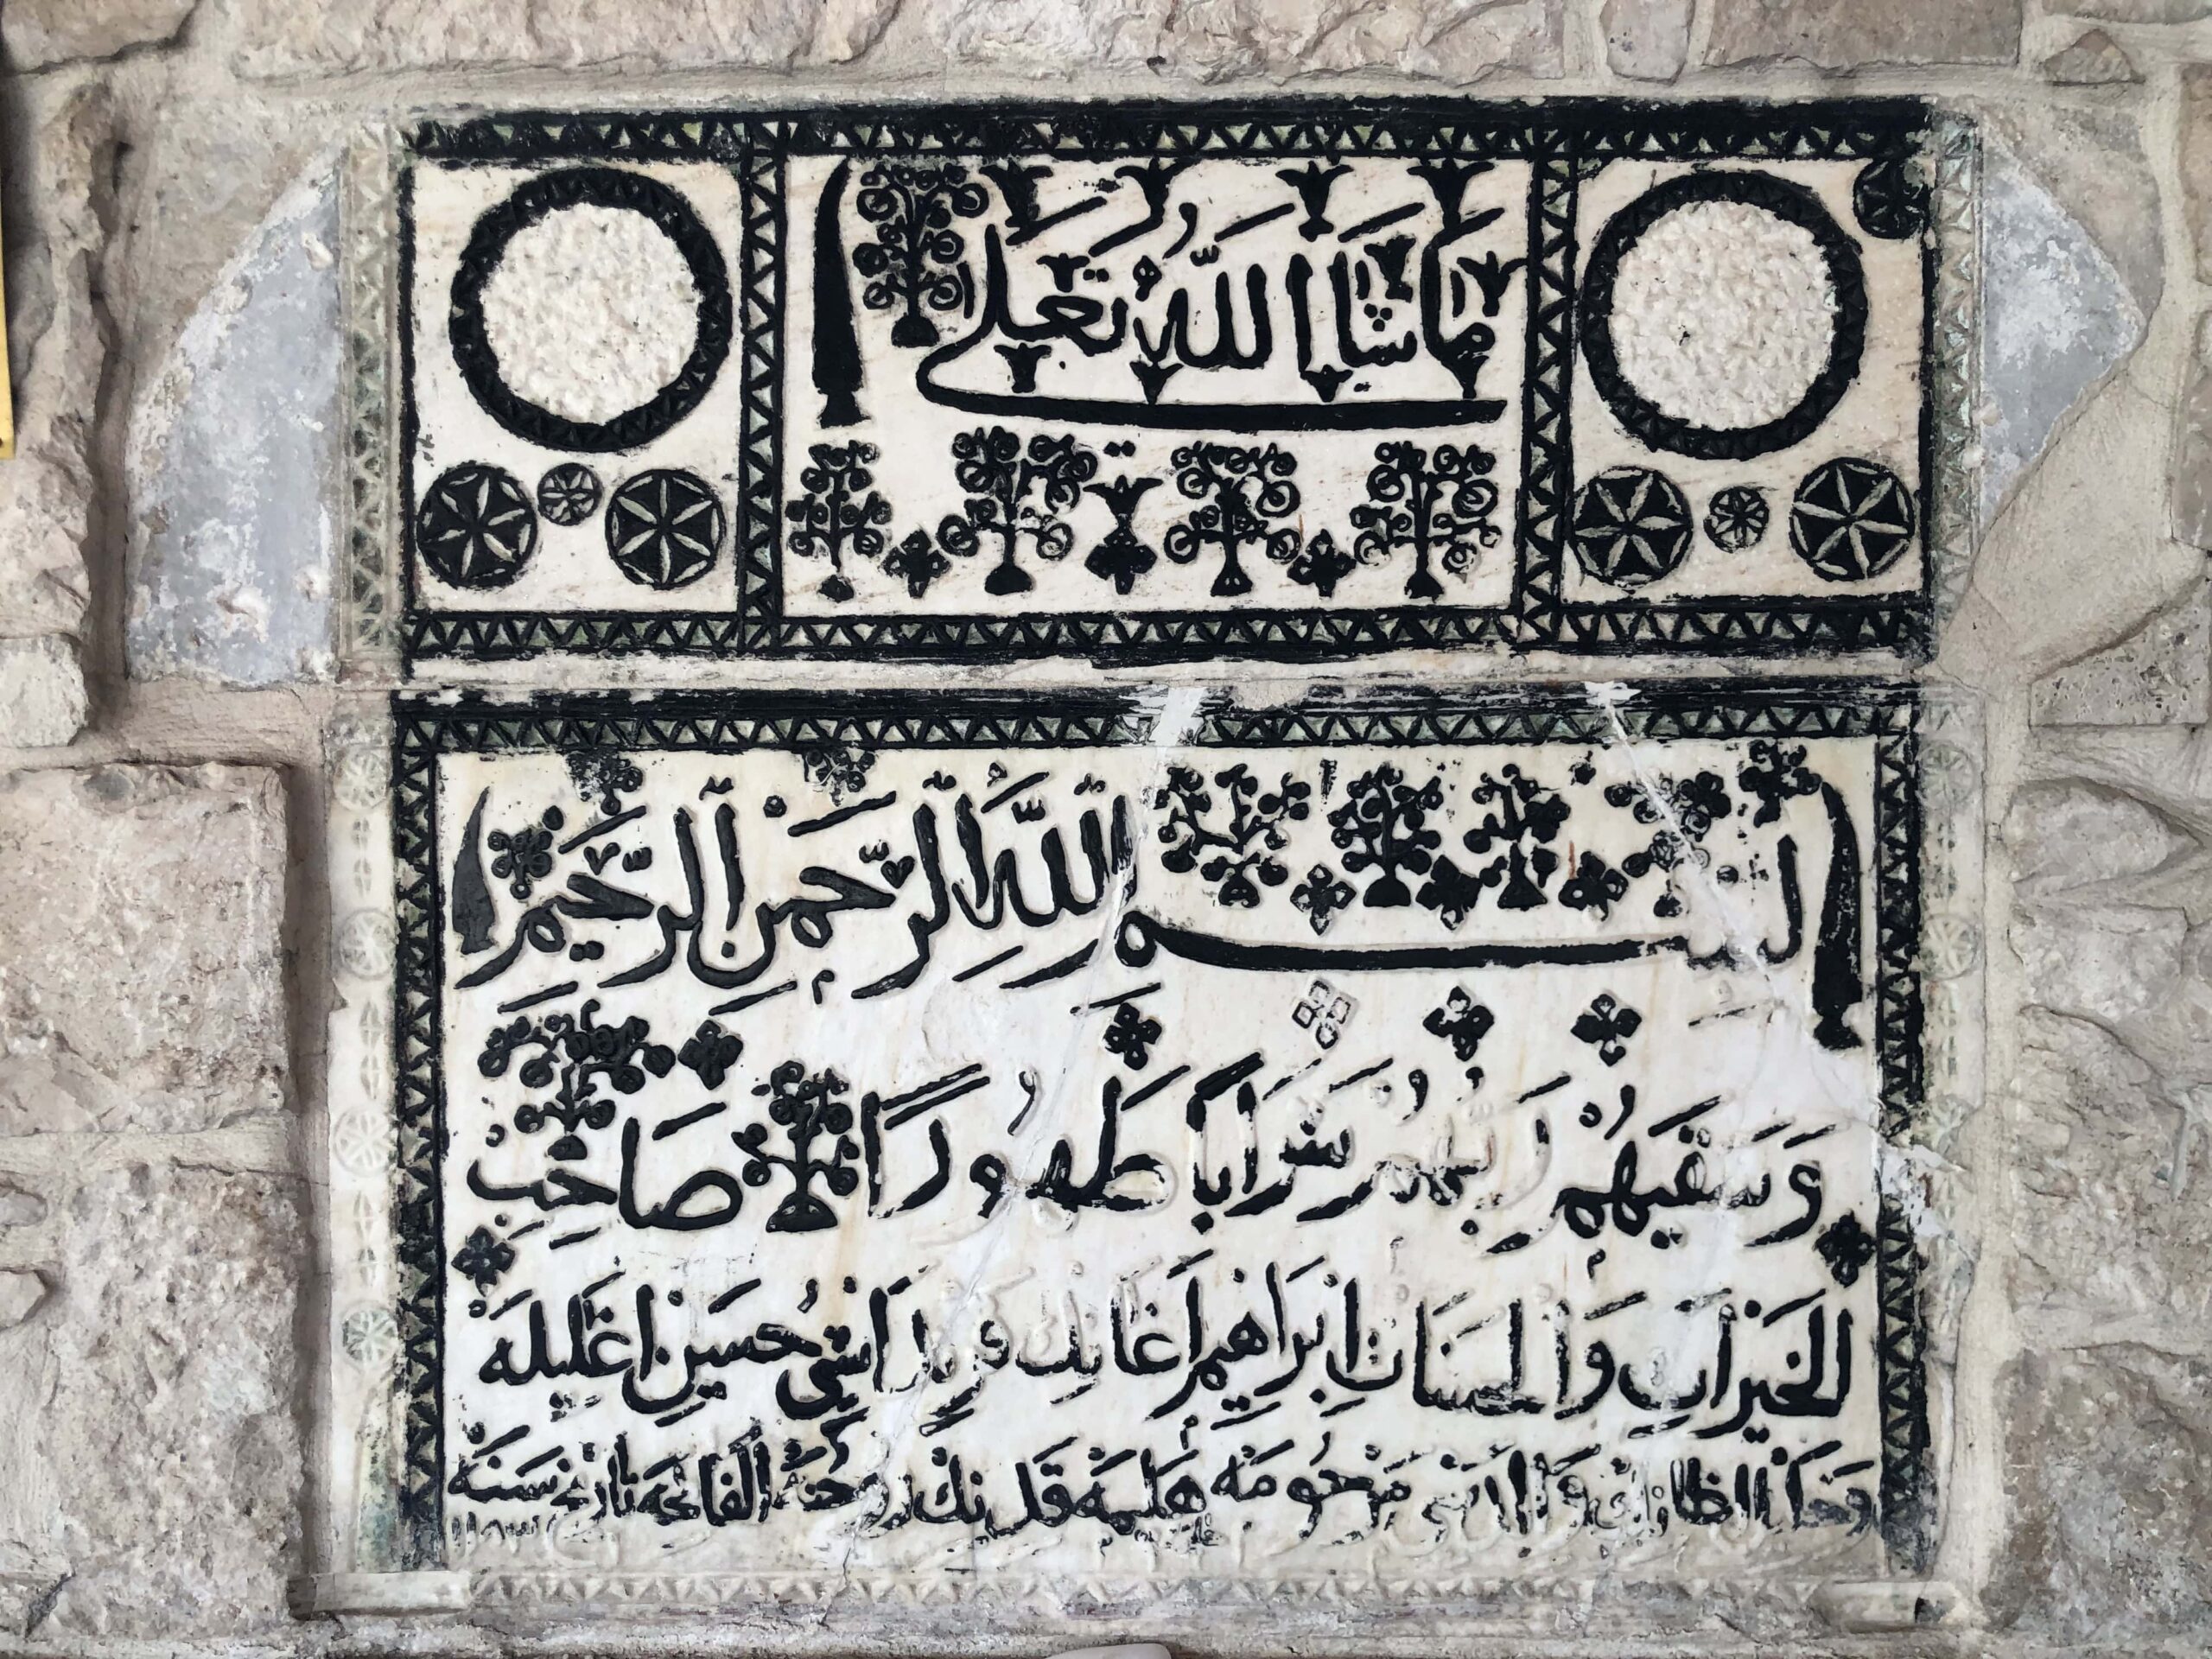 ما شاا الله تعلى
بسم الله الرحمن الرحيم
وَسَقٰيهُمْ رَبُّهُمْ شَرَابًا طَهُورًا صَاحِبُ
الخيرات والحسنات ابراهيم اغانك قرنداشي حسين اغليله
مرحومه روحنه الفاتحه تاريخ سنه